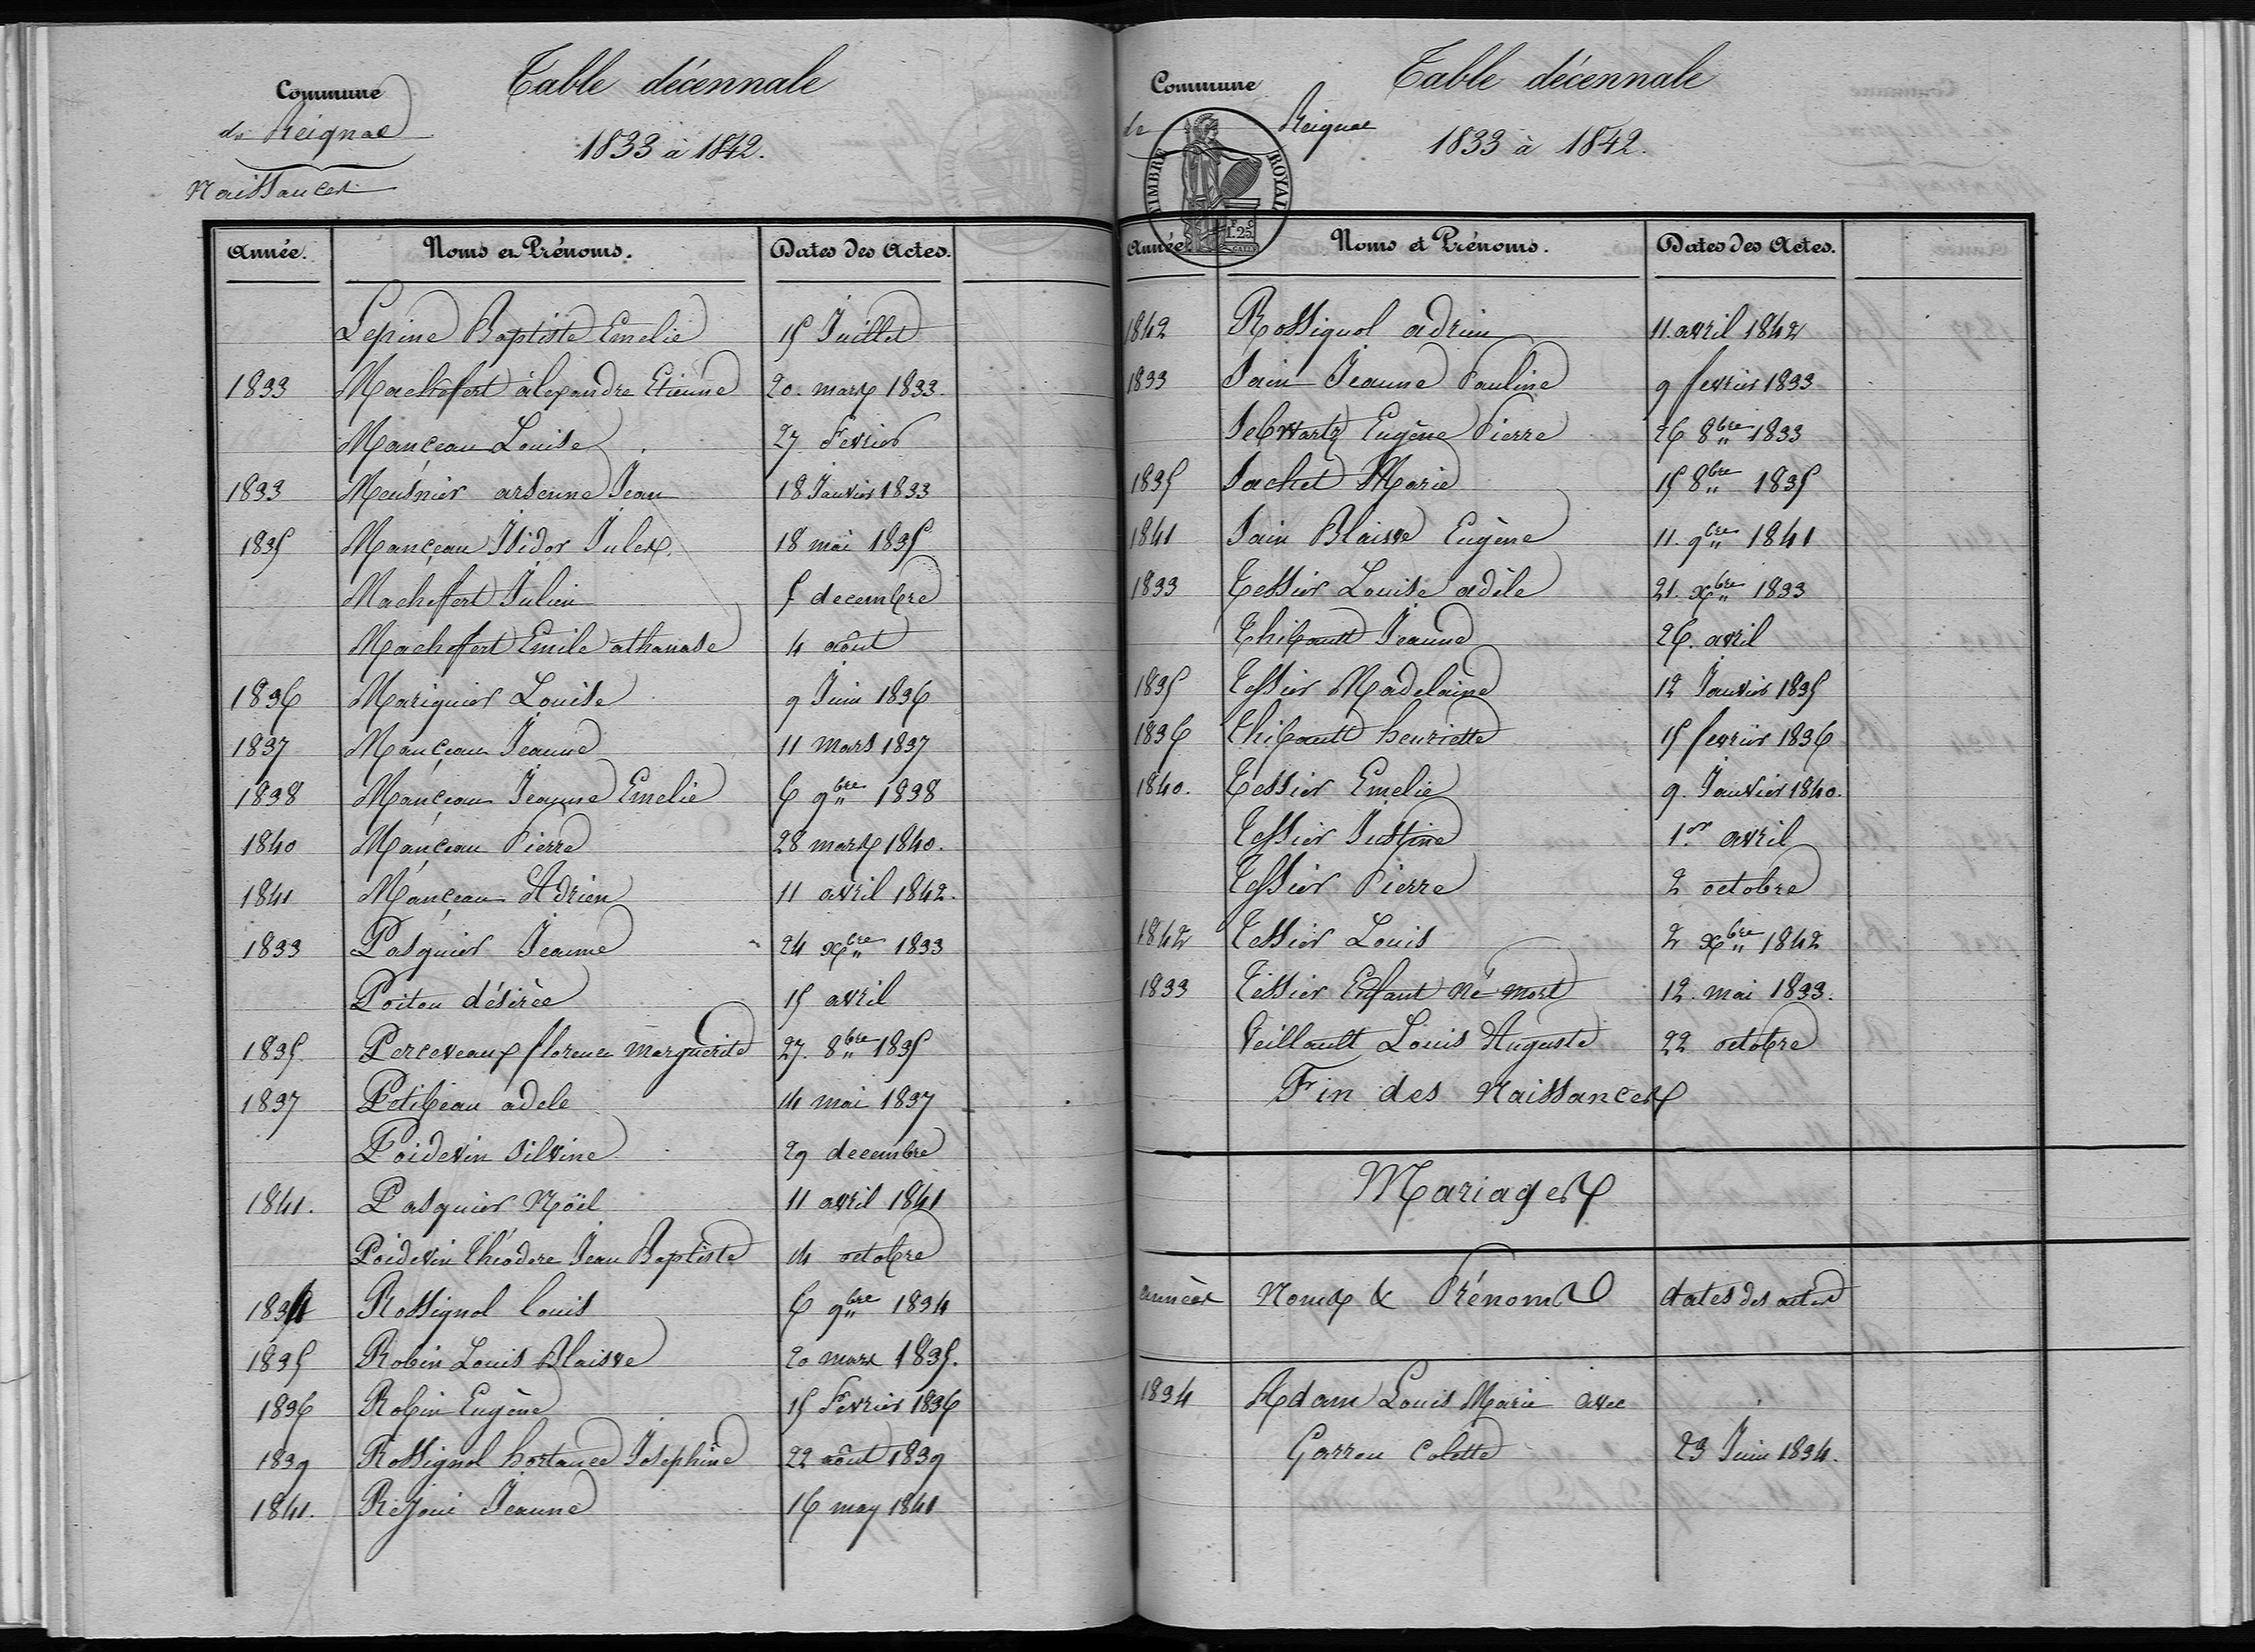 Commune
de Reignac
Naissances
Table décennale
1833 à 1842.
Année. Noms et Prénoms. Dates des Actes.
Lepine Baptiste Emelie 15 Juillet
1833 Machefert alexandre Etienne 20 mars 1833.
Mançeau Louise 27 Fevrier
1833 Meusnier arsenne Jean 18 Janvier 1833
1835 Mançeau Isidor Jules 18 mai 1835
Machefert Julien 5 decembre
Machefert Emile athanase 4 août
1836 Mariguier Louise 9 Juin 1836
1837 Mançeau Jeanne 11 mars 1837
1838 Mançeau Jeanne Emelie 6 9bre 1838
1840 Mançeau Pierre 28 mars 1840.
1841 Mançeau Adrien 11 avril 1842.
1833 Pasquier Jeanne 24 xbre 1833
Poitou désirèe 15 avril
1835 Perceveaux florence marguerite 27. 8bre 1835
1837 Petibeau adele 14 mai 1837
Poidevin silvine 29 decembre
1841. Pasquier Nöel 11 avril 1841
Poidevin Théodore Jean Baptiste 14 octobre
1834 Rossignol louis 6 9bre 1834
1835 Robin Louis Blaisve 20 mars 1835.
1836 Robin Eugène 15 Fevrier 1836
1839 Rossignol hortance Josephine 22 août 1839
1841. Rejoui Jeanne 16 may 1841
Commune
de Reignac
TIMBRE ROYAL
1.25
Table décennale
1833 à 1842.
Année Noms et Prénoms. Dates des Actes.
1842 Rossignol adrien 11. avril 1842
1833 Sain Jeanne Pauline 9 fevrier 1833
Sebwartz Eugène Pierre 26 8bre 1833
1835 Sachet Marie 15 8bre 1835
1841 Sain Blaisve Eugène 11. 9bre 1841
1833 Tessier Louise adèle 21. xbre 1833
Thibault Jeanne 26. avril
1835 Tessier Madelaine 12 Janvier 1835
1836 Thibault henriette 15 fevrier 1836
1840. Tessier Emelie 9. Janvier 1840.
Tessier Justine 1er avril
Tessier Pierre 2 octobre
1842 Tessier Louis 2 xbre 1842
1833 Tessier Enfant né mort 12. mai 1833.
Veillault Louis Auguste 22 octobre
Fin des Naissances
Mariages
années Noms & Prénoms dates des actes
1834 Adam Louis Marie avec
Garrou Colette 23 Juin 1834.